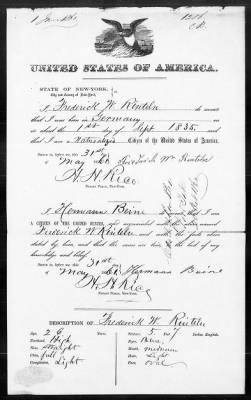 UNITED STATES OF AMERICA.
STATE OF NEW-YORK,
City and County of New-York,
I Frederick W. Rinteln do swear
that I was born in Germany
on the 1st day of Sept 1835
that I am a Naturalized Citizen of the United States of America.
Sworn to, before me, this 31st
May
H. H. Rice
Notary Public, New-York.
I Hermann
A CITIZEN OF THE UNITED STATES, am acquainted with the above named
Frederick W. Rinteln and with the facts above
stated by him, and that the same are true to the best of my
knowledge and belief.
Sworn to, before me, this 31st
May Hermann
H. H. Rice
Notary Public, New-York.
DESCRIPTION OF Frederick W. Rinteln
Age, 26 Stature, 5. Feet, 7 Inches, English.
Forehead, High Eyes, Blue,
Nose, straight Mouth, medium
Chin, full Hair, Light
Complexion, Light Face, oval